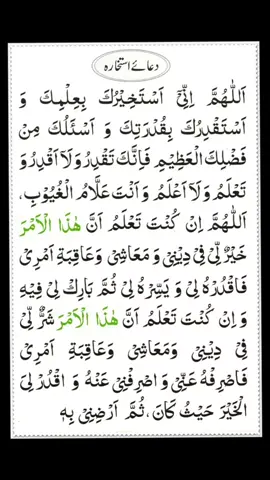 دعائے استخارہ
اَللّٰهُمَّ اِنِّىْٓ اَسْتَخِيْرُكَ بِعِلْمِكَ وَ
اَسْتَقْدِرُكَ بِقُدْرَتِكَ وَ اَسْئَلُكَ مِنْ
فَضْلِكَ الْعَظِيْمِ فَاِنَّكَ تَقْدِرُ وَلَآ اَقْدِرُ وَ
تَعْلَمُ وَلَآ اَعْلَمُ وَ اَنْتَ عَلَّامُ الْغُيُوْبِ،
اَللّٰهُمَّ اِنْ كُنْتَ تَعْلَمُ اَنَّ هٰذَا الْاَمْرَ
خَيْرٌ لِّىْ فِىْ دِيْنِىْ وَ مَعَاشِىْ وَعَاقِبَةِ اَمْرِىْ
فَاقْدُرْهُ لِىْ وَ يَسِّرْهُ لِىْ ثُمَّ بَارِكْ لِىْ فِيْهِ
وَ اِنْ كُنْتَ تَعْلَمُ اَنَّ هٰذَا الْاَمْرَ شَرٌّ لِّىْ
فِىْ دِيْنِىْ وَمَعَاشِىْ وَعَاقِبَةِ اَمْرِىْ
فَاصْرِفْهُ عَنِّىْ وَ اصْرِفْنِىْ عَنْهُ وَ اقْدُرْ لِىَ
الْخَيْرَ حَيْثُ كَانَ، ثُمَّ اَرْضِنِىْ بِهٖ